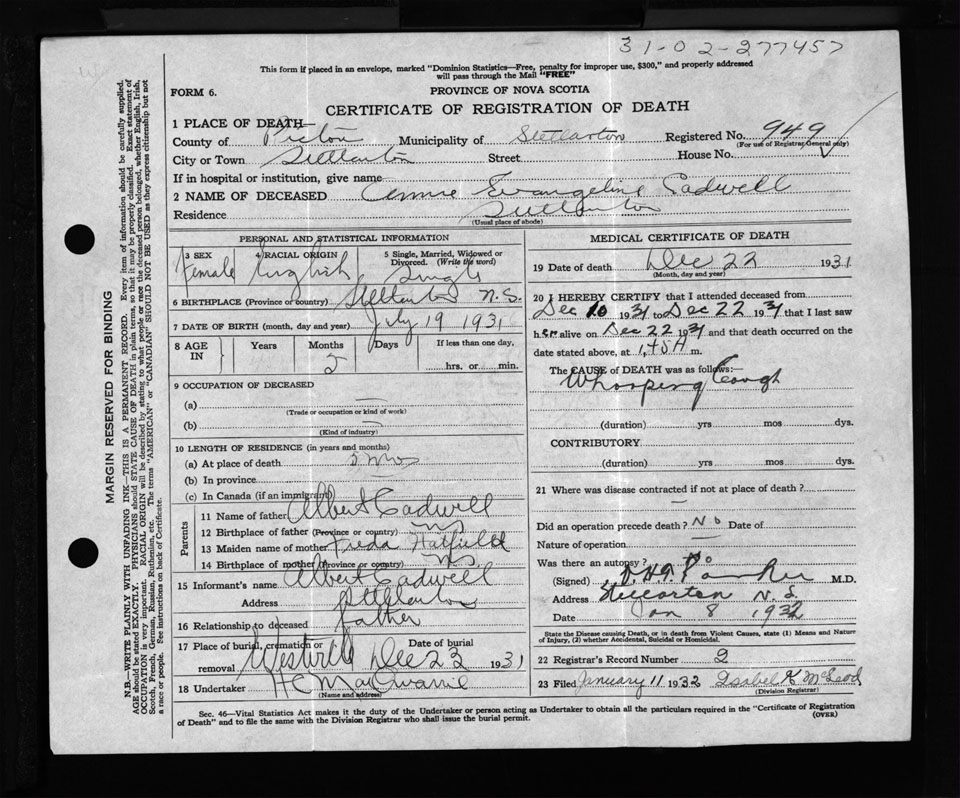 31-02-277457
This form if placed in an envelope, marked "Dominion Statistics—Free, penalty for improper use, $300," and properly addressed
will pass through the Mail "FREE"
FORM 6.
PROVINCE OF NOVA SCOTIA
CERTIFICATE OF REGISTRATION OF DEATH
1 PLACE OF DEATH—
County of Pictou Municipality of Stellarton Registered No. 949
(For use of Registrar General only)
City or Town Stellarton Street House No.
If in hospital or institution, give name
2 NAME OF DECEASED Annie Evangeline Cadwell
Residence Stellarton
(Usual place of abode)
PERSONAL AND STATISTICAL INFORMATION
3 SEX 4 RACIAL ORIGIN 5 Single, Married, Widowed or
Divorced. (Write the word)
Female English Single
6 BIRTHPLACE (Province or country) Stellarton N.S.
7 DATE OF BIRTH (month, day and year) July 19 1931
8 AGE IN Years Months Days If less than one day,
5 hrs. or min.
9 OCCUPATION OF DECEASED
(a) —
(Trade or occupation or kind of work)
(b) —
(Kind of industry)
10 LENGTH OF RESIDENCE (in years and months)
(a) At place of death 5 mos
(b) In province
(c) In Canada (if an immigrant)
Parents
11 Name of father Albert Cadwell
12 Birthplace of father (Province or country) NS
13 Maiden name of mother Freda Hatfield
14 Birthplace of mother (Province or country) NS
15 Informant's name Albert Cadwell
Address Stellarton
16 Relationship to deceased father
17 Place of burial, cremation or Date of burial
removal Westville Dec 23 1931
18 Undertaker H C
(Name and address)
MEDICAL CERTIFICATE OF DEATH
19 Date of death Dec 22 1931
(Month, day and year)
20 I HEREBY CERTIFY that I attended deceased from
Dec 10 1931 to Dec 22 1931 that I last saw
her alive on Dec 22 1931 and that death occurred on the
date stated above, at 1,45 A m.
The CAUSE of DEATH was as follows:—
Whooping Cough
(duration) yrs mos dys.
CONTRIBUTORY
(duration) yrs. mos. dys.
21 Where was disease contracted if not at place of death?
Did an operation precede death? No Date of
Nature of operation —
Was there an autopsy? No
(Signed) M.D.
Address Stellarton N.S.
Date Jan 8 1932
State the Disease causing Death, or in death from Violent Causes, state (1) Means and Nature
of Injury, (2) whether Accidental, Suicidal or Homicidal.
22 Registrar's Record Number 2
23 Filed January 11 1932 Isabel K McLeod
(Division Registrar)
Sec. 46—Vital Statistics Act makes it the duty of the Undertaker or person acting as Undertaker to obtain all the particulars required in the "Certificate of Registration
of Death" and to file the same with the Division Registrar who shall issue the burial permit.
(OVER)
MARGIN RESERVED FOR BINDING
N.B.—WRITE PLAINLY WITH UNFADING INK—THIS IS A PERMANENT RECORD. Every item of information should be carefully supplied.
AGE should be stated EXACTLY. PHYSICIANS should STATE CAUSE OF DEATH in plain terms, so that it may be properly classified. Exact statement of
OCCUPATION is very important. RACIAL ORIGIN will be described by stating to what people or race the deceased person belonged, whether English, Irish,
Scotch, French, German, Russian, Ruthenian, etc. The terms "AMERICAN" or "CANADIAN" SHOULD NOT BE USED as they express citizenship but not
a race or people. See instructions on back of Certificate.